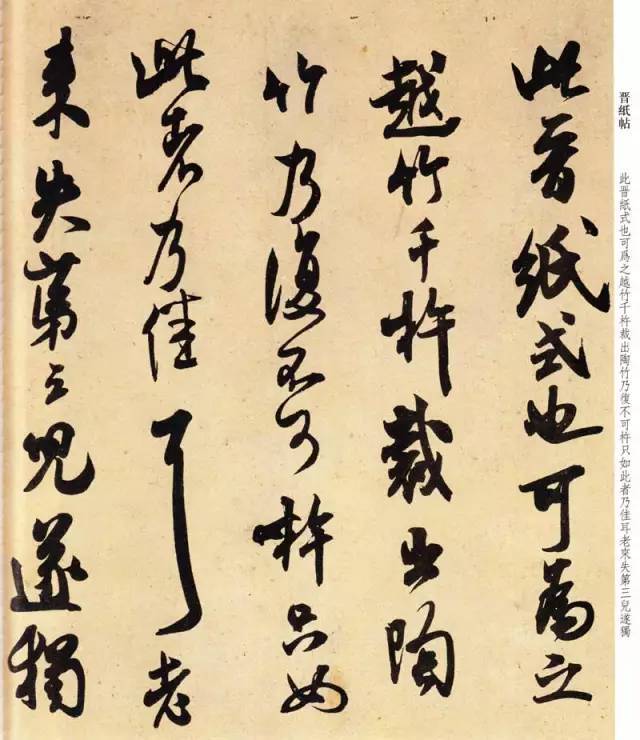 此晋紙式也可為之
越竹千杵裁出陶
竹乃復不可杵只如
此者乃佳耳老
来失第三児遂獨
晋纸帖
此晋紙式也可爲之越竹千杵裁出陶竹乃復不可杵只如此者乃佳耳老來失第三兒遂獨